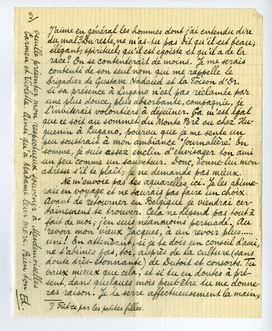 J'aime en général les hommes dont j'ai entendu dire
du mal. Du reste, ne m'as-tu pas dit qu'il est beau,
élégant, spirituel, qu'il est égoïste et qu'il a de la
race? On se contenterait de moins. Je me serais
contenté de son seul nom que me rappelle le
brigadier de Gustave Nadaud et la Toison d'Or.
Si sa présence à Lugano n'est pas réclamée par
une plus douce, plus absorbante, compagnie, je
l'inviterai volontiers à déjeuner. Ça m'est égal
que ce soit au sommet du Monte Brè ou chez
à Lugano, pourvu que je me sente un
peu soustrait à mon ambiance "journalière". En
somme, je suis assez enclin d'envisager son ami
un peu comme un sauveteur. Donc, donne-lui mon
adresse s'il te plaît; je ne demande pas mieux.
Ne m'envoie pas tes aquarelles ici. Je les abîme-
rais en voyage et ne saurai pas faire un choix.
Avant de retourner en Belgique je viendrai cer-
tainement te trouver. Cela ne dépend pas tout à
fait de moi, j'en suis néanmoins persuadé. Au
revoir mon vieux Jacques, à un revoir plus....
vrai! En attendant, si je te dois un conseil d'ami,
ne t'abîmes pas, toi, auprès de la culture (sans
doute très-étonnante) de Dutoit et consorts. Tu
vaux mieux que cela, et si tu en doutes à pré-
sent, dans quelques mois peut-être tu me donne-
ras raison. Je te serre affectueusement la main,
par les petites filles.
veuille présenter mon respectueux souvenir à Mesdemoiselles
Germaine et Violette. Ainsi qu'à Madame leur mère. Bien ton